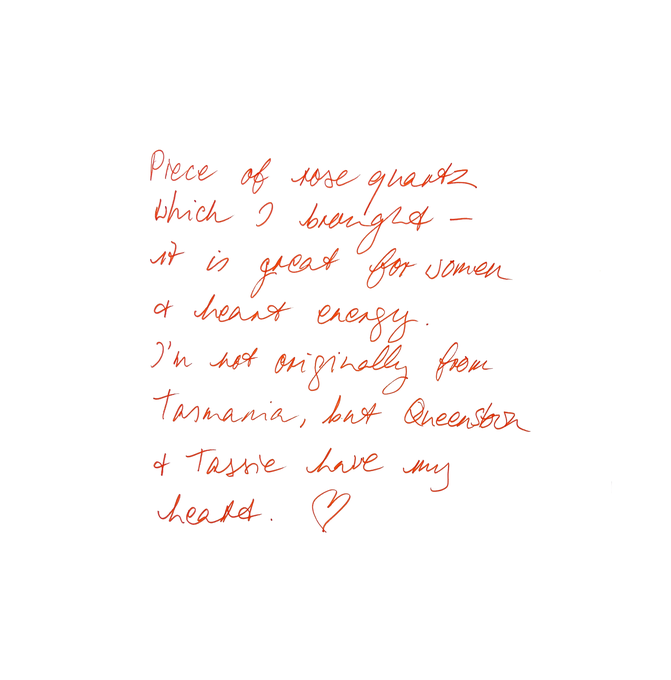 Piece of rose quartz
which I brought –
it is great for women
& heart energy.
I'm not originally from
Tasmania, but Queenstown
& Tassie have my
heart. ♡